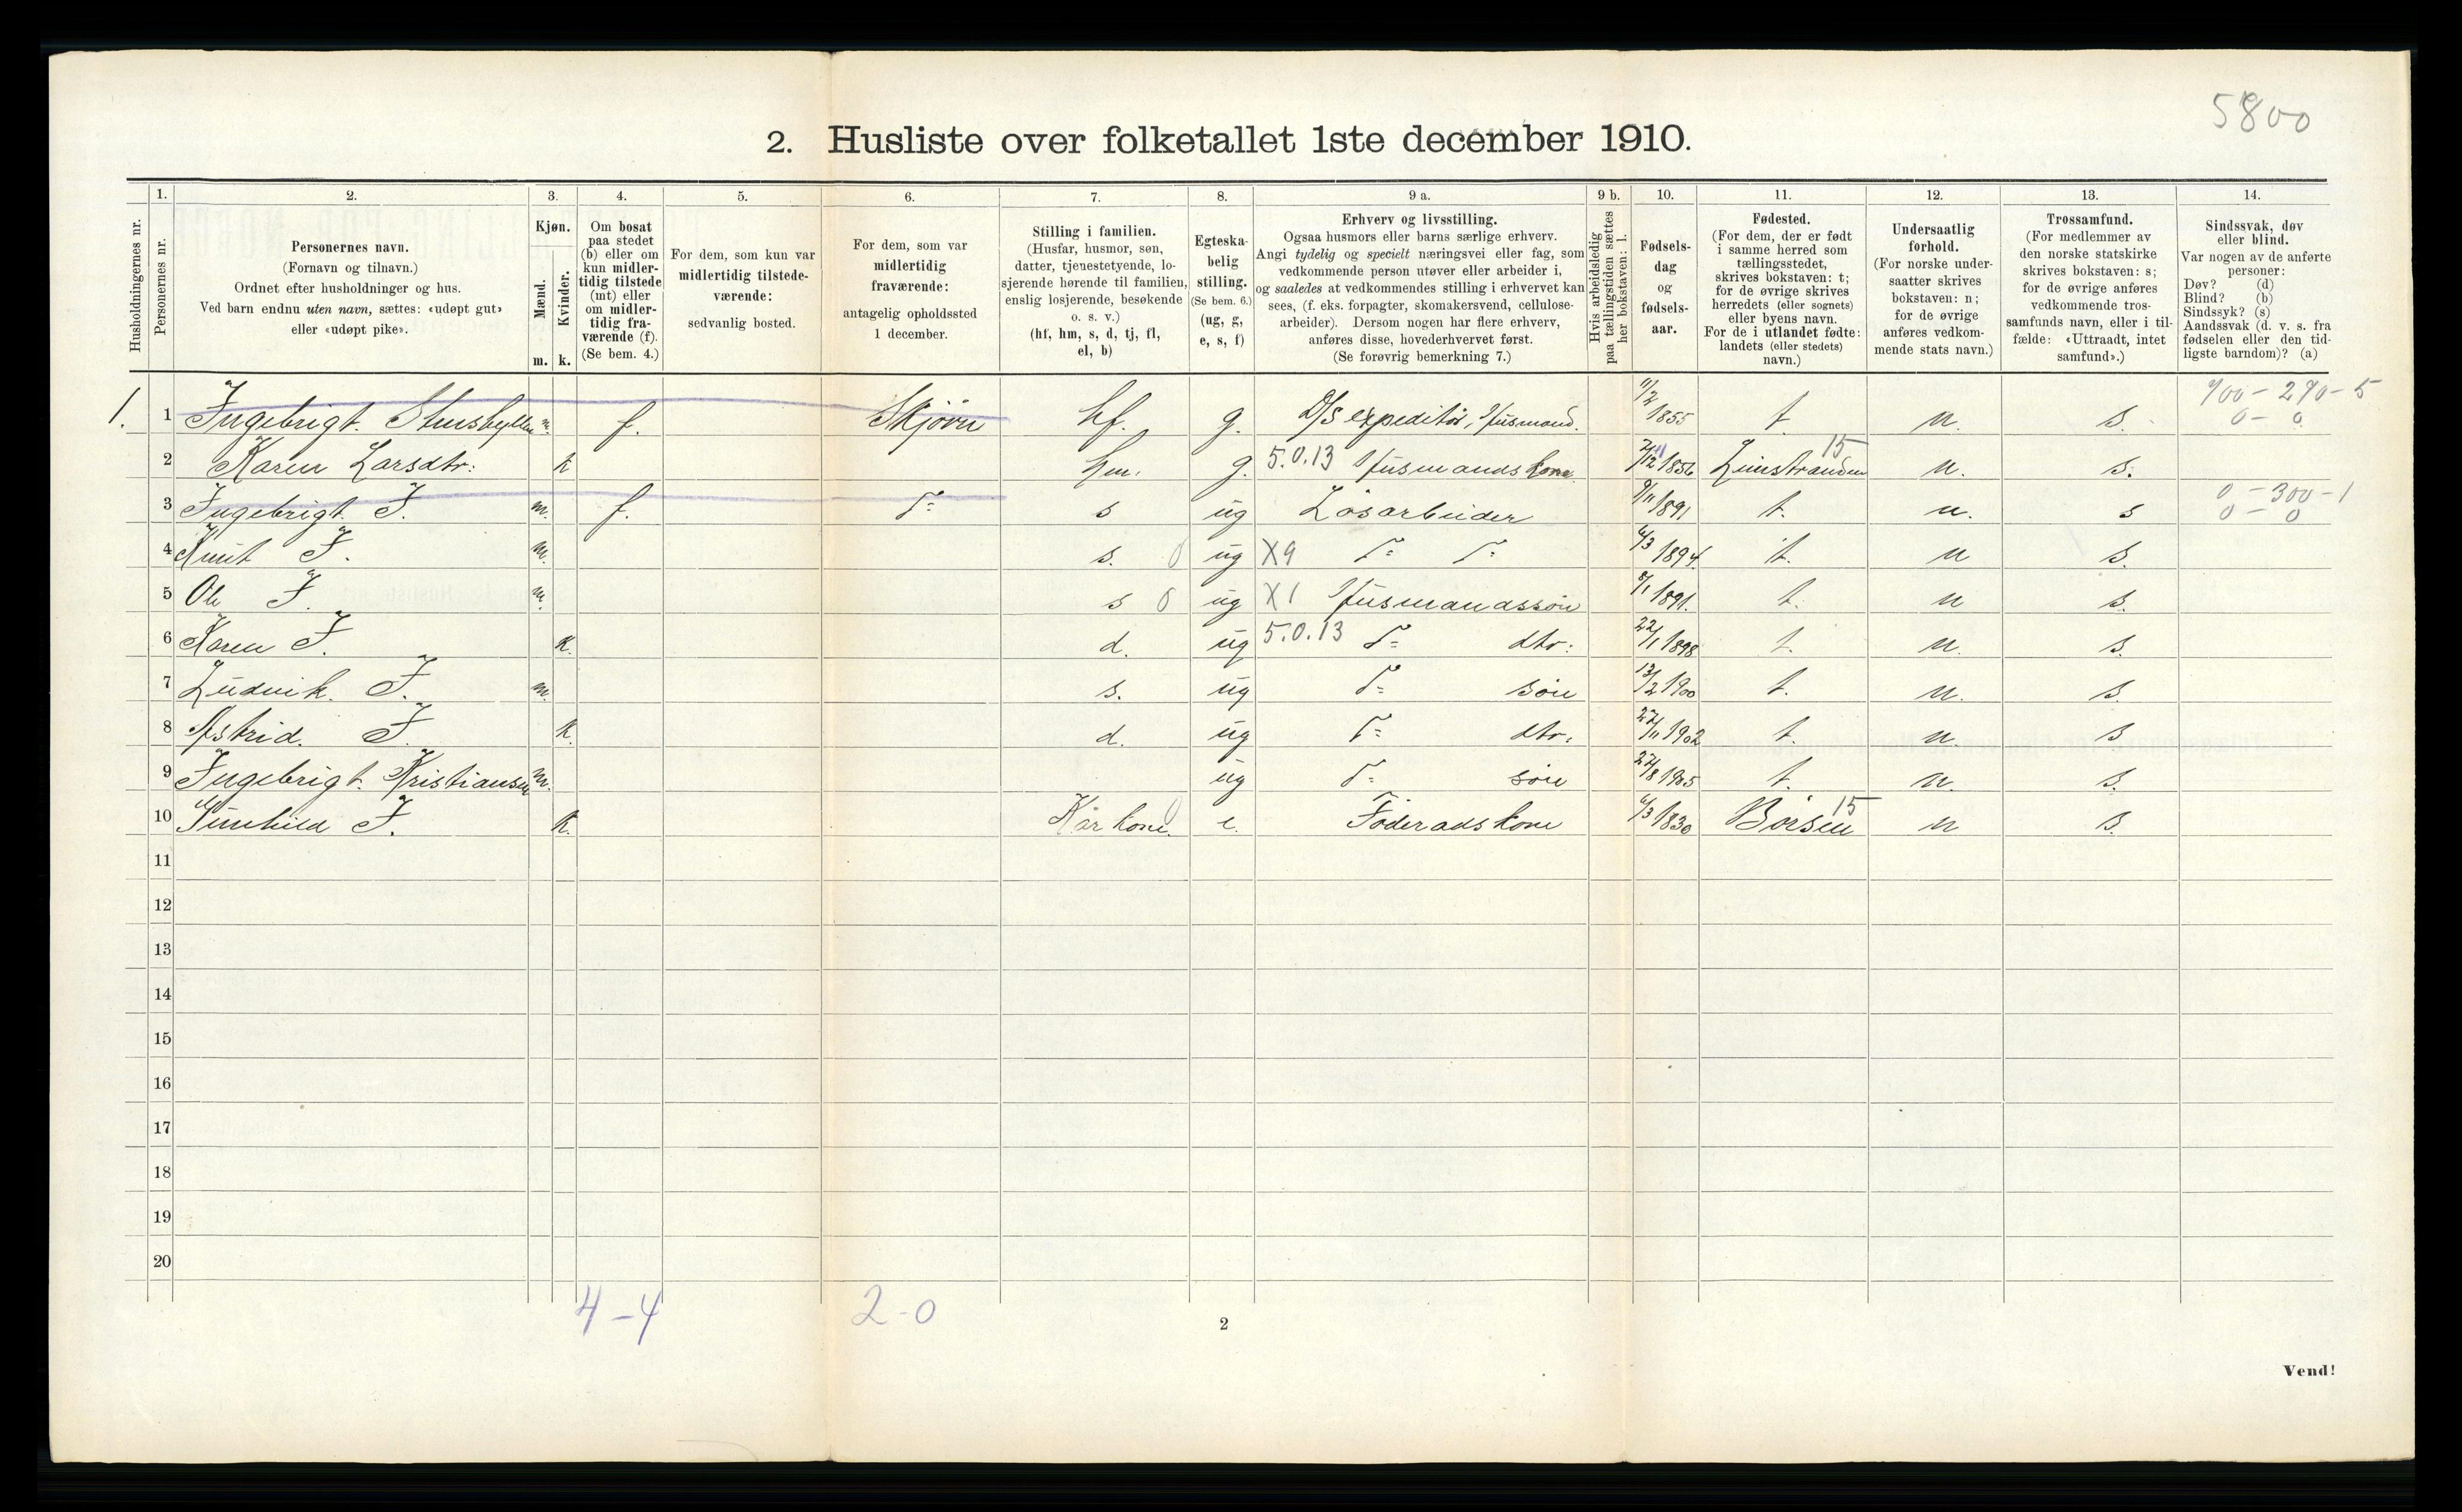 5800
2. Husliste over folketallet 1ste december 1910.
1. 2. 3. 4. 5. 6. 7. 8. 9 a. 9 b. 10. 11. 12. 13. 14.
Husholdningernes nr.
Personernes nr.
Personernes navn.
(Fornavn og tilnavn.)
Ordnet efter husholdninger og hus.
Ved barn endnu uten navn, sættes: «udøpt gut»
eller «udøpt pike».
Kjøn.
Mænd.
Kvinder.
m. k.
Om bosat
paa stedet
(b) eller om
kun midler-
tidig tilstede
(mt) eller
om midler-
tidig fra-
værende (f).
(Se bem. 4.)
For dem, som kun var
midlertidig tilstede-
værende:
sedvanlig bosted.
For dem, som var
midlertidig
fraværende:
antagelig opholdssted
1 december.
Stilling i familien.
(Husfar, husmor, søn,
datter, tjenestetyende, lo-
sjerende hørende til familien,
enslig losjerende, besøkende
o. s. v.)
(hf, hm, s, d, tj, fl,
el, b)
Egteska-
belig
stilling.
(Se bem. 6.)
(ug, g,
e, s, f)
Erhverv og livsstilling.
Ogsaa husmors eller barns særlige erhverv.
Angi tydelig og specielt næringsvei eller fag, som
vedkommende person utøver eller arbeider i,
og saaledes at vedkommendes stilling i erhvervet kan
sees, (f. eks. forpagter, skomakersvend, cellulose-
arbeider). Dersom nogen har flere erhverv,
anføres disse, hovederhvervet først.
(Se forøvrig bemerkning 7.)
Hvis arbeidsledig
paa tællingstiden sættes
her bokstaven: l.
Fødsels-
dag
og
fødsels-
aar.
Fødested.
(For dem, der er født
i samme herred som
tællingsstedet,
skrives bokstaven: t;
for de øvrige skrives
herredets (eller sognets)
eller byens navn.
For de i utlandet fødte:
landets (eller stedets)
navn.)
Undersaatlig
forhold.
(For norske under-
saatter skrives
bokstaven: n;
for de øvrige
anføres vedkom-
mende stats navn.)
Trossamfund.
(For medlemmer av
den norske statskirke
skrives bokstaven: s;
for de øvrige anføres
vedkommende tros-
samfunds navn, eller i til-
fælde: «Uttraadt, intet
samfund».)
Sindssvak, døv
eller blind.
Var nogen av de anførte
personer:
Døv? (d)
Blind? (b)
Sindssyk? (s)
Aandssvak (d. v. s. fra
fødselen eller den tid-
ligste barndom)? (a)
1. 1 Ingebrigt m. f. Skjörn hf. g. D/S expeditör, Husmand. 11/2 1855 t. n. s. 900-290-5 0-0
2 Karen Larsdtr: k hm. g. 5.0.13 Husmandskone 1856 15 n. s.
3 Ingebrigt I. m. f. s ug Lösarbeider 9/11 1891 t. n. s 0-300-1 0-0
4 Knut I. m. s. 0 ug X9 6/3 1894. t. n s.
5 Ole I. m. s 0 ug X1 Husmandssön 8/1 1891. t. n s.
6 Karen I. k. d. ug 5.0.13 dtr: 22/1 1898 t. n. s.
7 Ludvik. I. m. s. ug sön 13/2 1900 t. n. s.
8 Astrid. I. k. d. ug dtr. 27/11 1902 t. n. s
9 Ingebrigt. Kristiansen m. ug sön 27/8 1905 t. n. s.
10 Gunhild I. k. Kårkone e. Föderadskone 6/3 1830 Börsen 15 n s.
11
12
13
14
15
16
17
18
19
20
4-4 2-0
2
Vend!